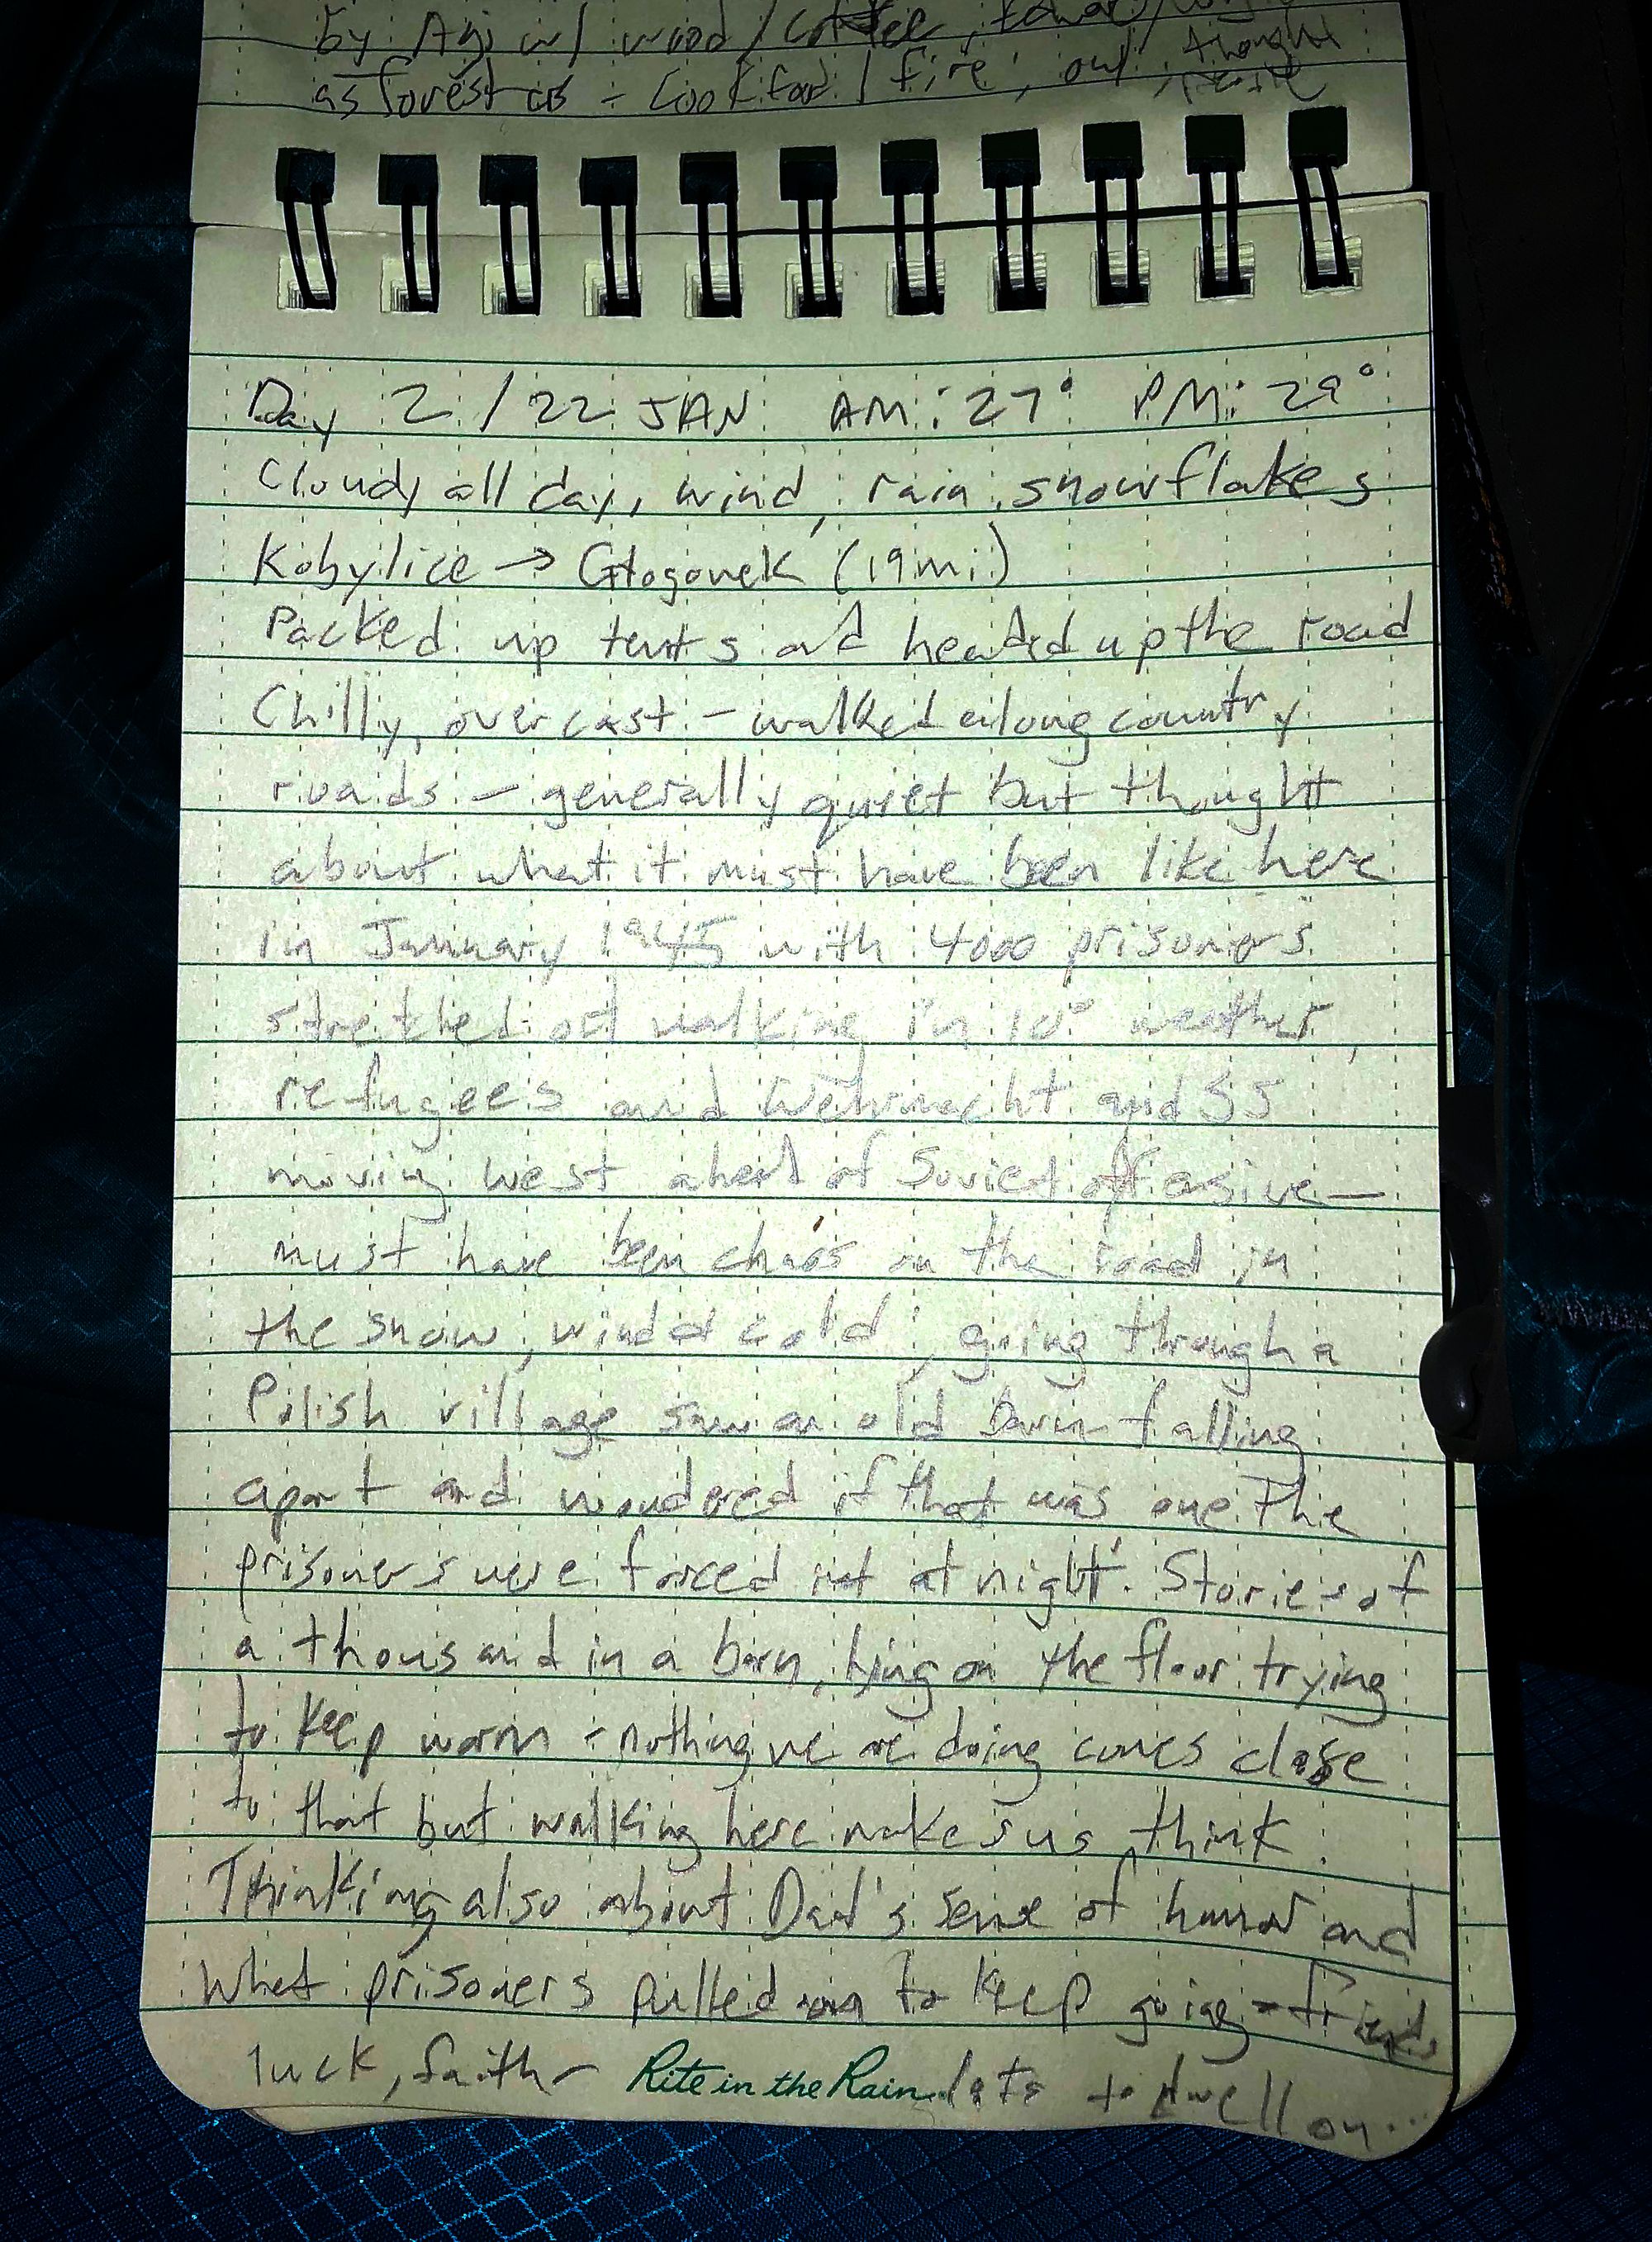 by Agi w/ wood/coffee, towar
as forest as - cook food / fire, our thought
Day 2 / 22 JAN AM: 27° PM: 29°
Cloudy all day, wind, rain, snowflakes
Kobylice → Głogowek (19mi)
Packed up tents and headed up the road
Chilly, overcast - walked along country
roads - generally quiet but thought
about what it must have been like here
in January 1945 with 4000 prisoners
stretched out walking in 10° weather,
refugees and Wehrmacht and SS
moving west ahead of Soviet offensive—
must have been chaos on the road in
the snow, wind & cold, going through a
Polish village saw an old barn falling
apart and wondered if that was one the
prisoners were forced into at night. Stories of
a thousand in a barn, lying on the floor trying
to keep warm - nothing we are doing comes close
to that but walking here makes us think.
Thinking also about Dad's sense of humor and
what prisoners pulled on to keep going - friends,
luck, faith - lots to dwell on...
Rite in the Rain